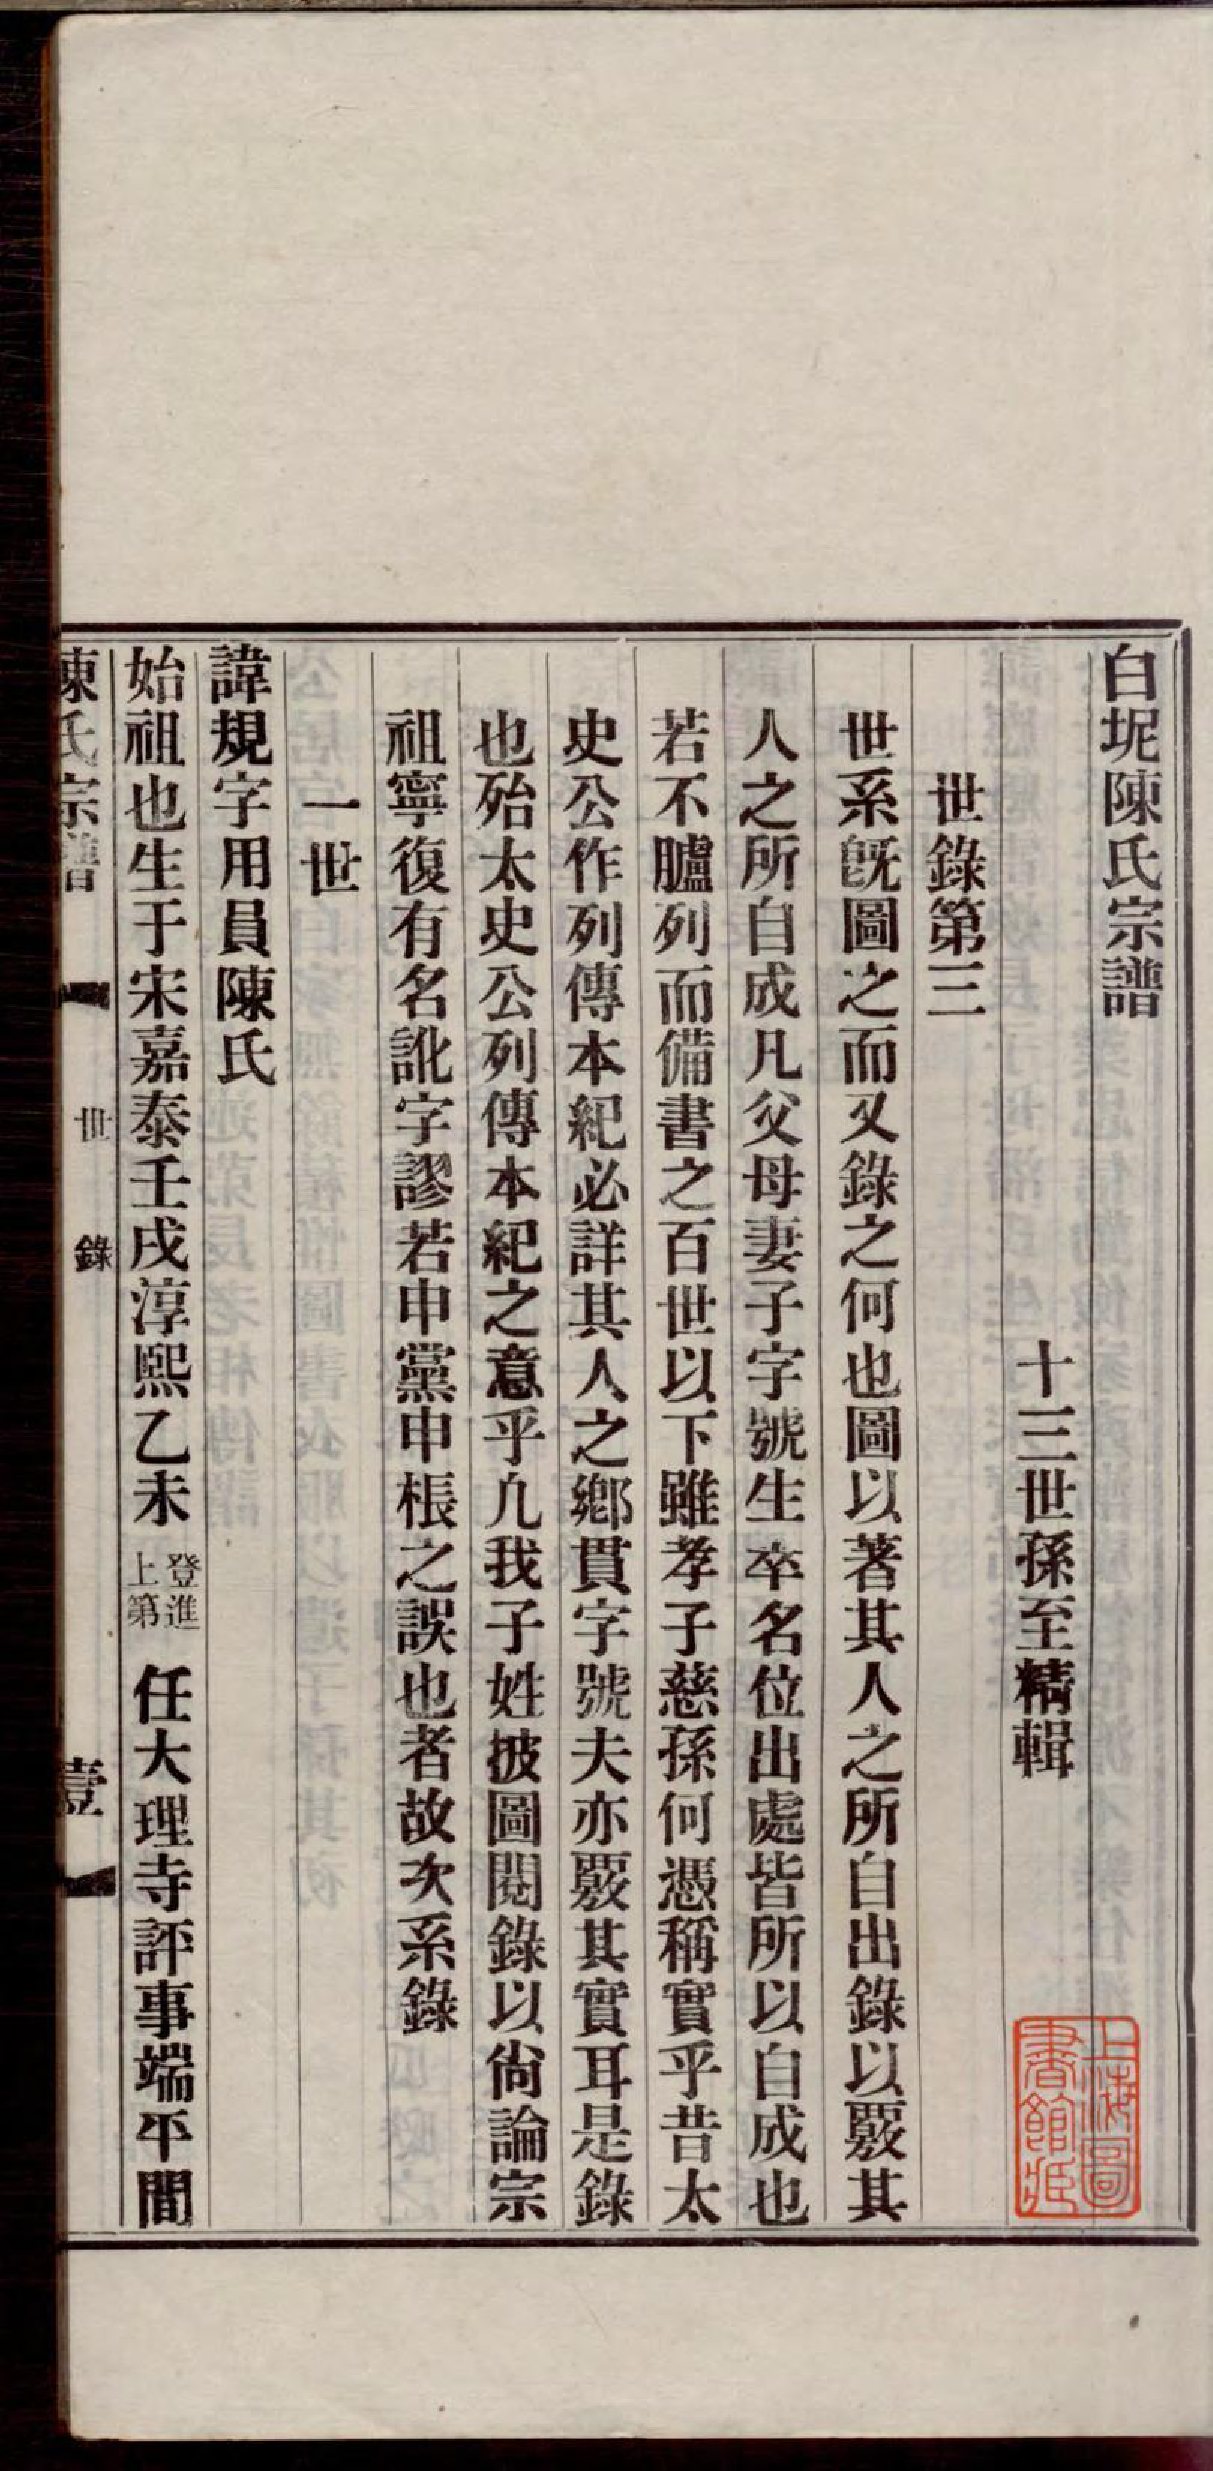 白坭陳氏宗譜
十三世孫至精輯
世錄第三
世系既圖之而又錄之何也圖以著其人之所自出錄以覈其
人之所自成凡父母妻子字號生卒名位出處皆所以自成也
若不臚列而備書之百世以下雖孝子慈孫何憑稱實乎昔太
史公作列傳本紀必詳其人之鄉貫字號夫亦覈其實耳是錄
也殆太史公列傳本紀之意乎凡我子姓披圖閱錄以尙論宗
祖寧復有名訛字謬若申黨申棖之誤也者故次系錄
一世
諱規字用員陳氏
始祖也生于宋嘉泰壬戌淳熙乙未登進上第任大理寺評事端平間
陳氏宗譜 世錄 壹
上海圖書館藏